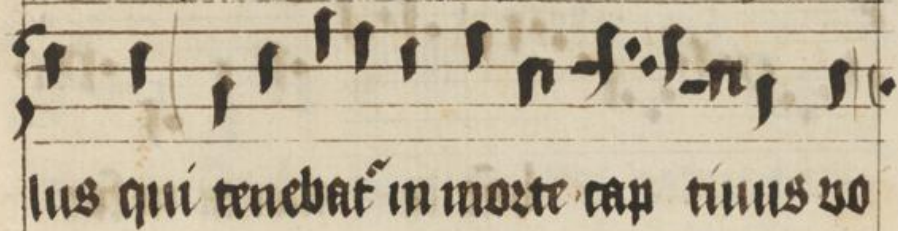 lus qui tenebatʳ in morte cap tiuus vo